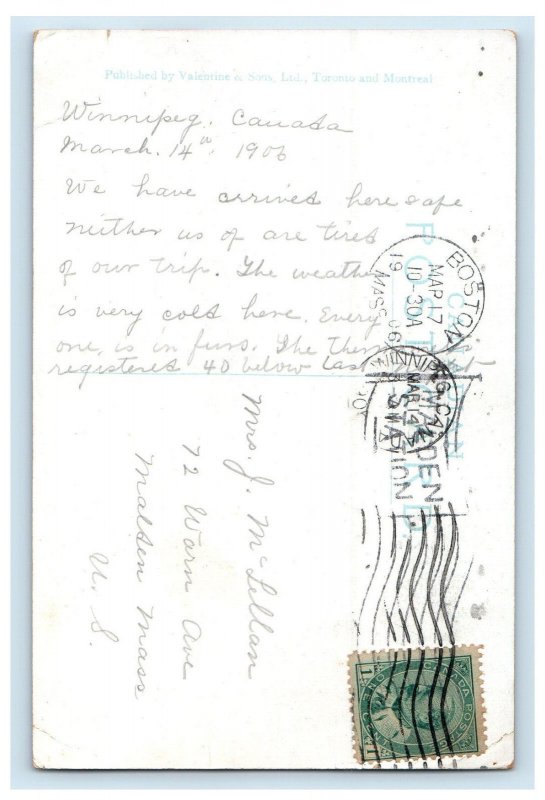 Published by Valentine & Sons, Ltd., Toronto and Montreal
Winnipeg. Canada
March. 14th, 1906
We have arrived here safe
neither us of are tired
of our trip. The weather
is very cold here. Every
one, is in furs. The
registered 40 below last
CANADIAN
POST CARD
BOSTON
MAR 17
10-30A
19 06
MASS.
WINNIPEG, CAN.
MAR 14
MALDEN
STATION
Mrs. J. McLellan
72 Warn Ave
Malden Mass
U. S.
CANADA POSTAGE
ONE CENT
1 1